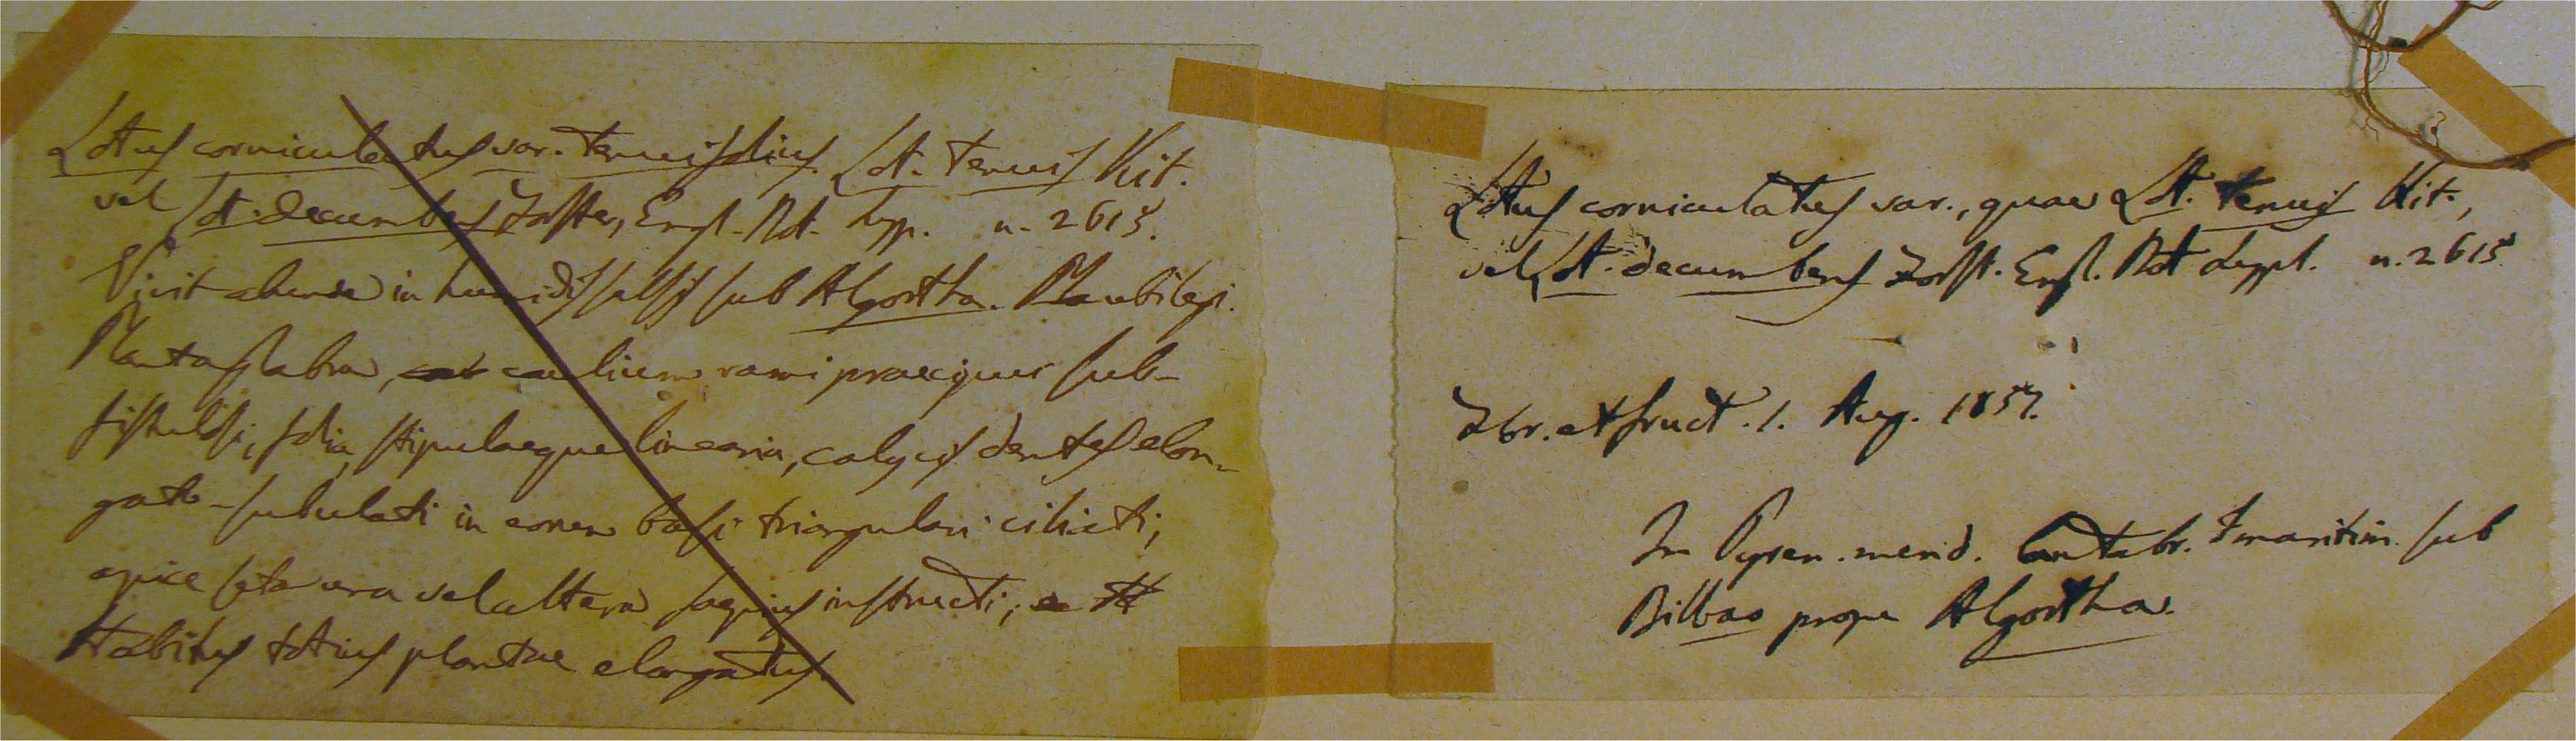 Lotus corniculatus var. tenuifolius. Lot. tenuis Kit.
vel Lot. decumbens Forster, Engl. Bot. Supp. n. 2615.
Vivit abunde in humidis salsis sub Algortha. Plan ubi legi.
Planta glabra, caulium rami praecipue sub-
fistulosi, folia, stipulaeque linearia, calycis dentes elon-
gato-subulati in eorum basi triangulari ciliati,
apice seta una vel altera saepius instructi;
Habitus totius plantae elongatus.
Lotus corniculatus var., quae Lot. tenuis Kit.,
vel Lot. decumbens Forst. Engl. Bot Suppl. n. 2615
Flor. et fruct. 1. Aug. 1857.
In Pyren. merid. Cantabr. maritim. sub
Bilbao prope Algortha.